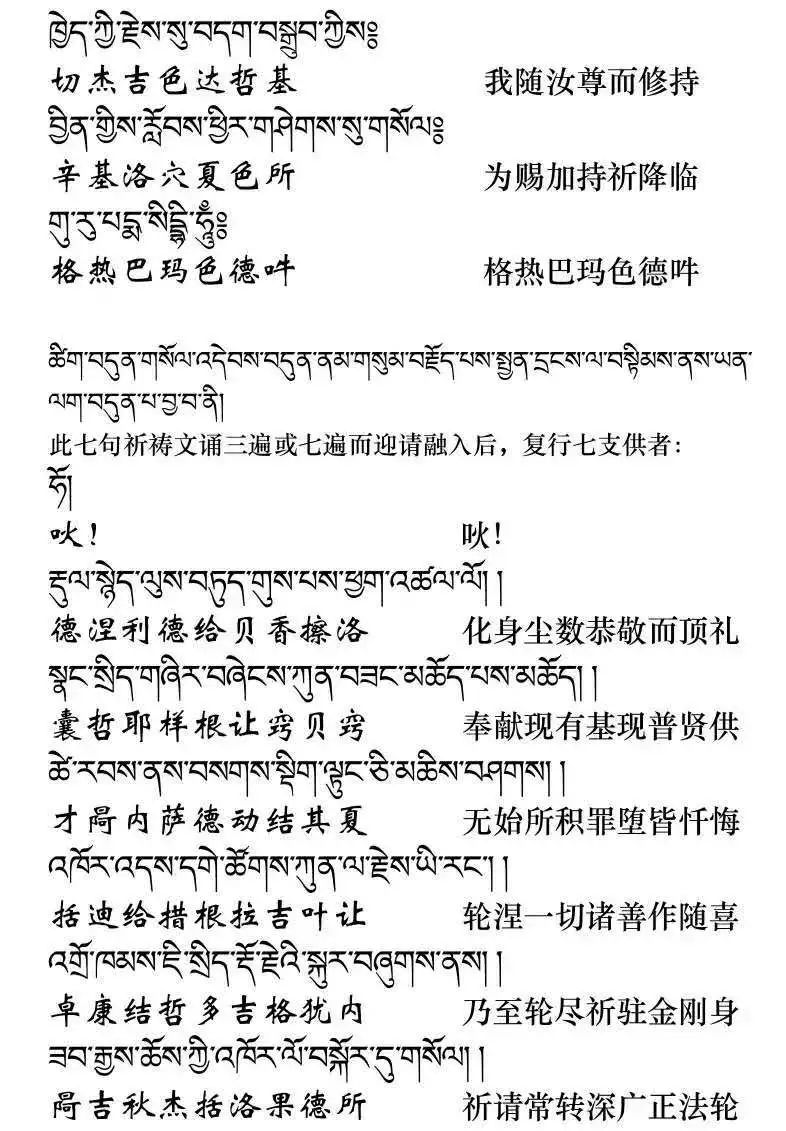 ཁྱེད་ཀྱི་རྗེས་སུ་བདག་བསྒྲུབ་ཀྱིས༔
切杰吉色达哲基 我随汝尊而修持
བྱིན་གྱིས་རློབས་ཕྱིར་གཤེགས་སུ་གསོལ༔
辛基洛穴夏色所 为赐加持祈降临
གུ་རུ་པདྨ་སིདྡྷི་ཧཱུྃ༔
格热巴玛色德吽 格热巴玛色德吽
ཚིག་བདུན་གསོལ་འདེབས་བདུན་ནམ་གསུམ་བརྗོད་པས་སྤྱན་དྲངས་ལ་བསྟིམས་ནས་ཡན་
ལག་བདུན་པ་བྱ་བ་ནི།
此七句祈祷文诵三遍或七遍而迎请融入后，复行七支供者：
ཧོ།
吙！ 吙！
རྡུལ་སྙེད་ལུས་བཏུད་གུས་པས་ཕྱག་འཚལ་ལོ། །
德涅利德给贝香擦洛 化身尘数恭敬而顶礼
སྣང་སྲིད་གཞིར་བཞེངས་ཀུན་བཟང་མཆོད་པས་མཆོད། །
囊哲耶样根让窍贝窍 奉献现有基现普贤供
ཚེ་རབས་ནས་བསགས་སྡིག་ལྟུང་ཅི་མཆིས་བཤགས། །
才冏内萨德动结其夏 无始所积罪堕皆忏悔
འཁོར་འདས་དགེ་ཚོགས་ཀུན་ལ་རྗེས་ཡི་རང་། །
括迪给措根拉吉叶让 轮涅一切诸善作随喜
འགྲོ་ཁམས་ཇི་སྲིད་རྡོ་རྗེའི་སྐུར་བཞུགས་ནས། །
卓康结哲多吉格犹内 乃至轮尽祈驻金刚身
ཟབ་རྒྱས་ཆོས་ཀྱི་འཁོར་ལོ་བསྐོར་དུ་གསོལ། །
吉秋杰括洛果德所 祈请常转深广正法轮